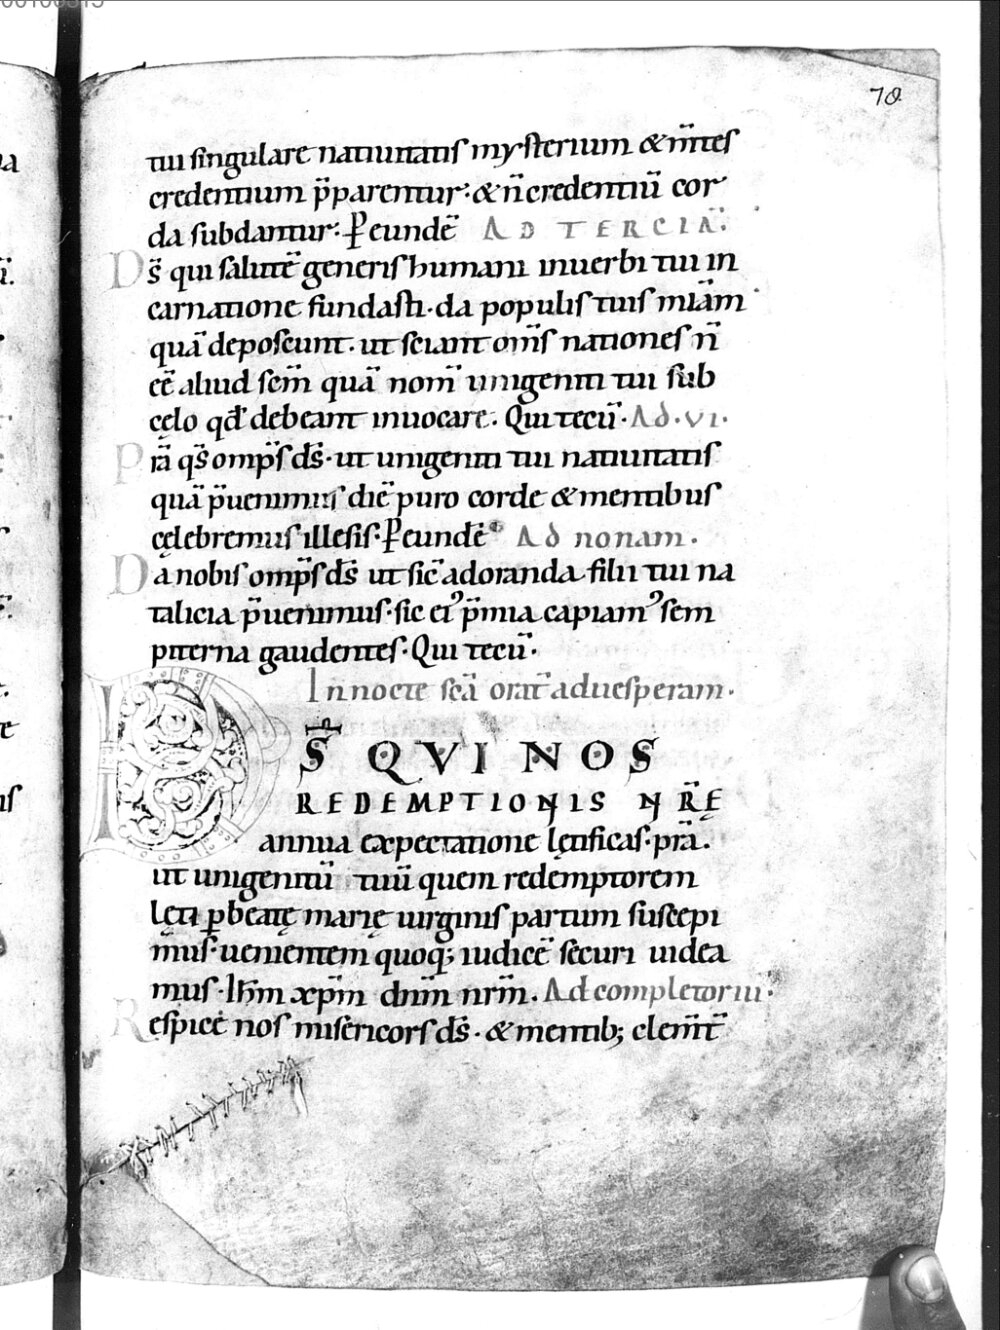 70
tui singulare natiuitatis mysterium & m̅tes
credentium p̅parentur: & n̅ credentiu̅ cor
da subdantur: ꝑ eunde̅ AD TERCIA̅:
Ds̅ qui salute̅ generis humani in uerbi tui in
carnatione fundasti · da populis tuis mi̅am
qua̅ deposcunt · ut sciant om̅s nationes n̅
ee̅ aliud sem̅ qua̅ nom̅ unigeniti tui sub
cęlo qd̅ debeant inuocare. Qui tecu̅ · Ad · VI ·
Pra̅ qs̅ omp̅s ds̅ · ut unigeniti tui natiuitatis
qua̅ p̅uenimus die̅ puro corde & mentibus
cęlebremus illesis · ꝑ eunde̅ Ad nonam .
Da nobis omp̅s ds̅ ut sic̅ adoranda filii tui na
talicia p̅uenimus · sic ei᾿ p̅mia capiam᾿ sem
piterna gaudentes · Qui tecu̅ ·
In nocte sc̅a orat̅ ad uesperam ·
DS̅ QVI NOS
REDEMPTIONIS NRE̅
annua expectatione lętificas · pra̅ .
ut unigenitu̅ tuu̅ quem redemptorem
lęti ꝑ beatę marię uirginis partum suscepi
mus · uenientem quoq; iudice̅ securi uidea
mus · ihm̅ xp̅m dnm̅ nrm̅ . Ad completoriu̅ ·
Respice nos misericors ds̅ · & mentib; clem̅t̅